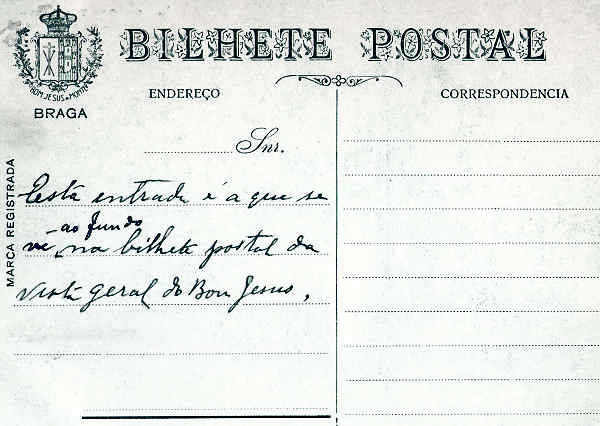 BILHETE POSTAL
BOM JESUS DO MONTE
BRAGA
MARCA REGISTRADA
ENDEREÇO
CORRESPONDENCIA
Snr.
Está entrada é a que se
ao fundo
vê na bilhete postal da
vista geral do Bom Jesus,